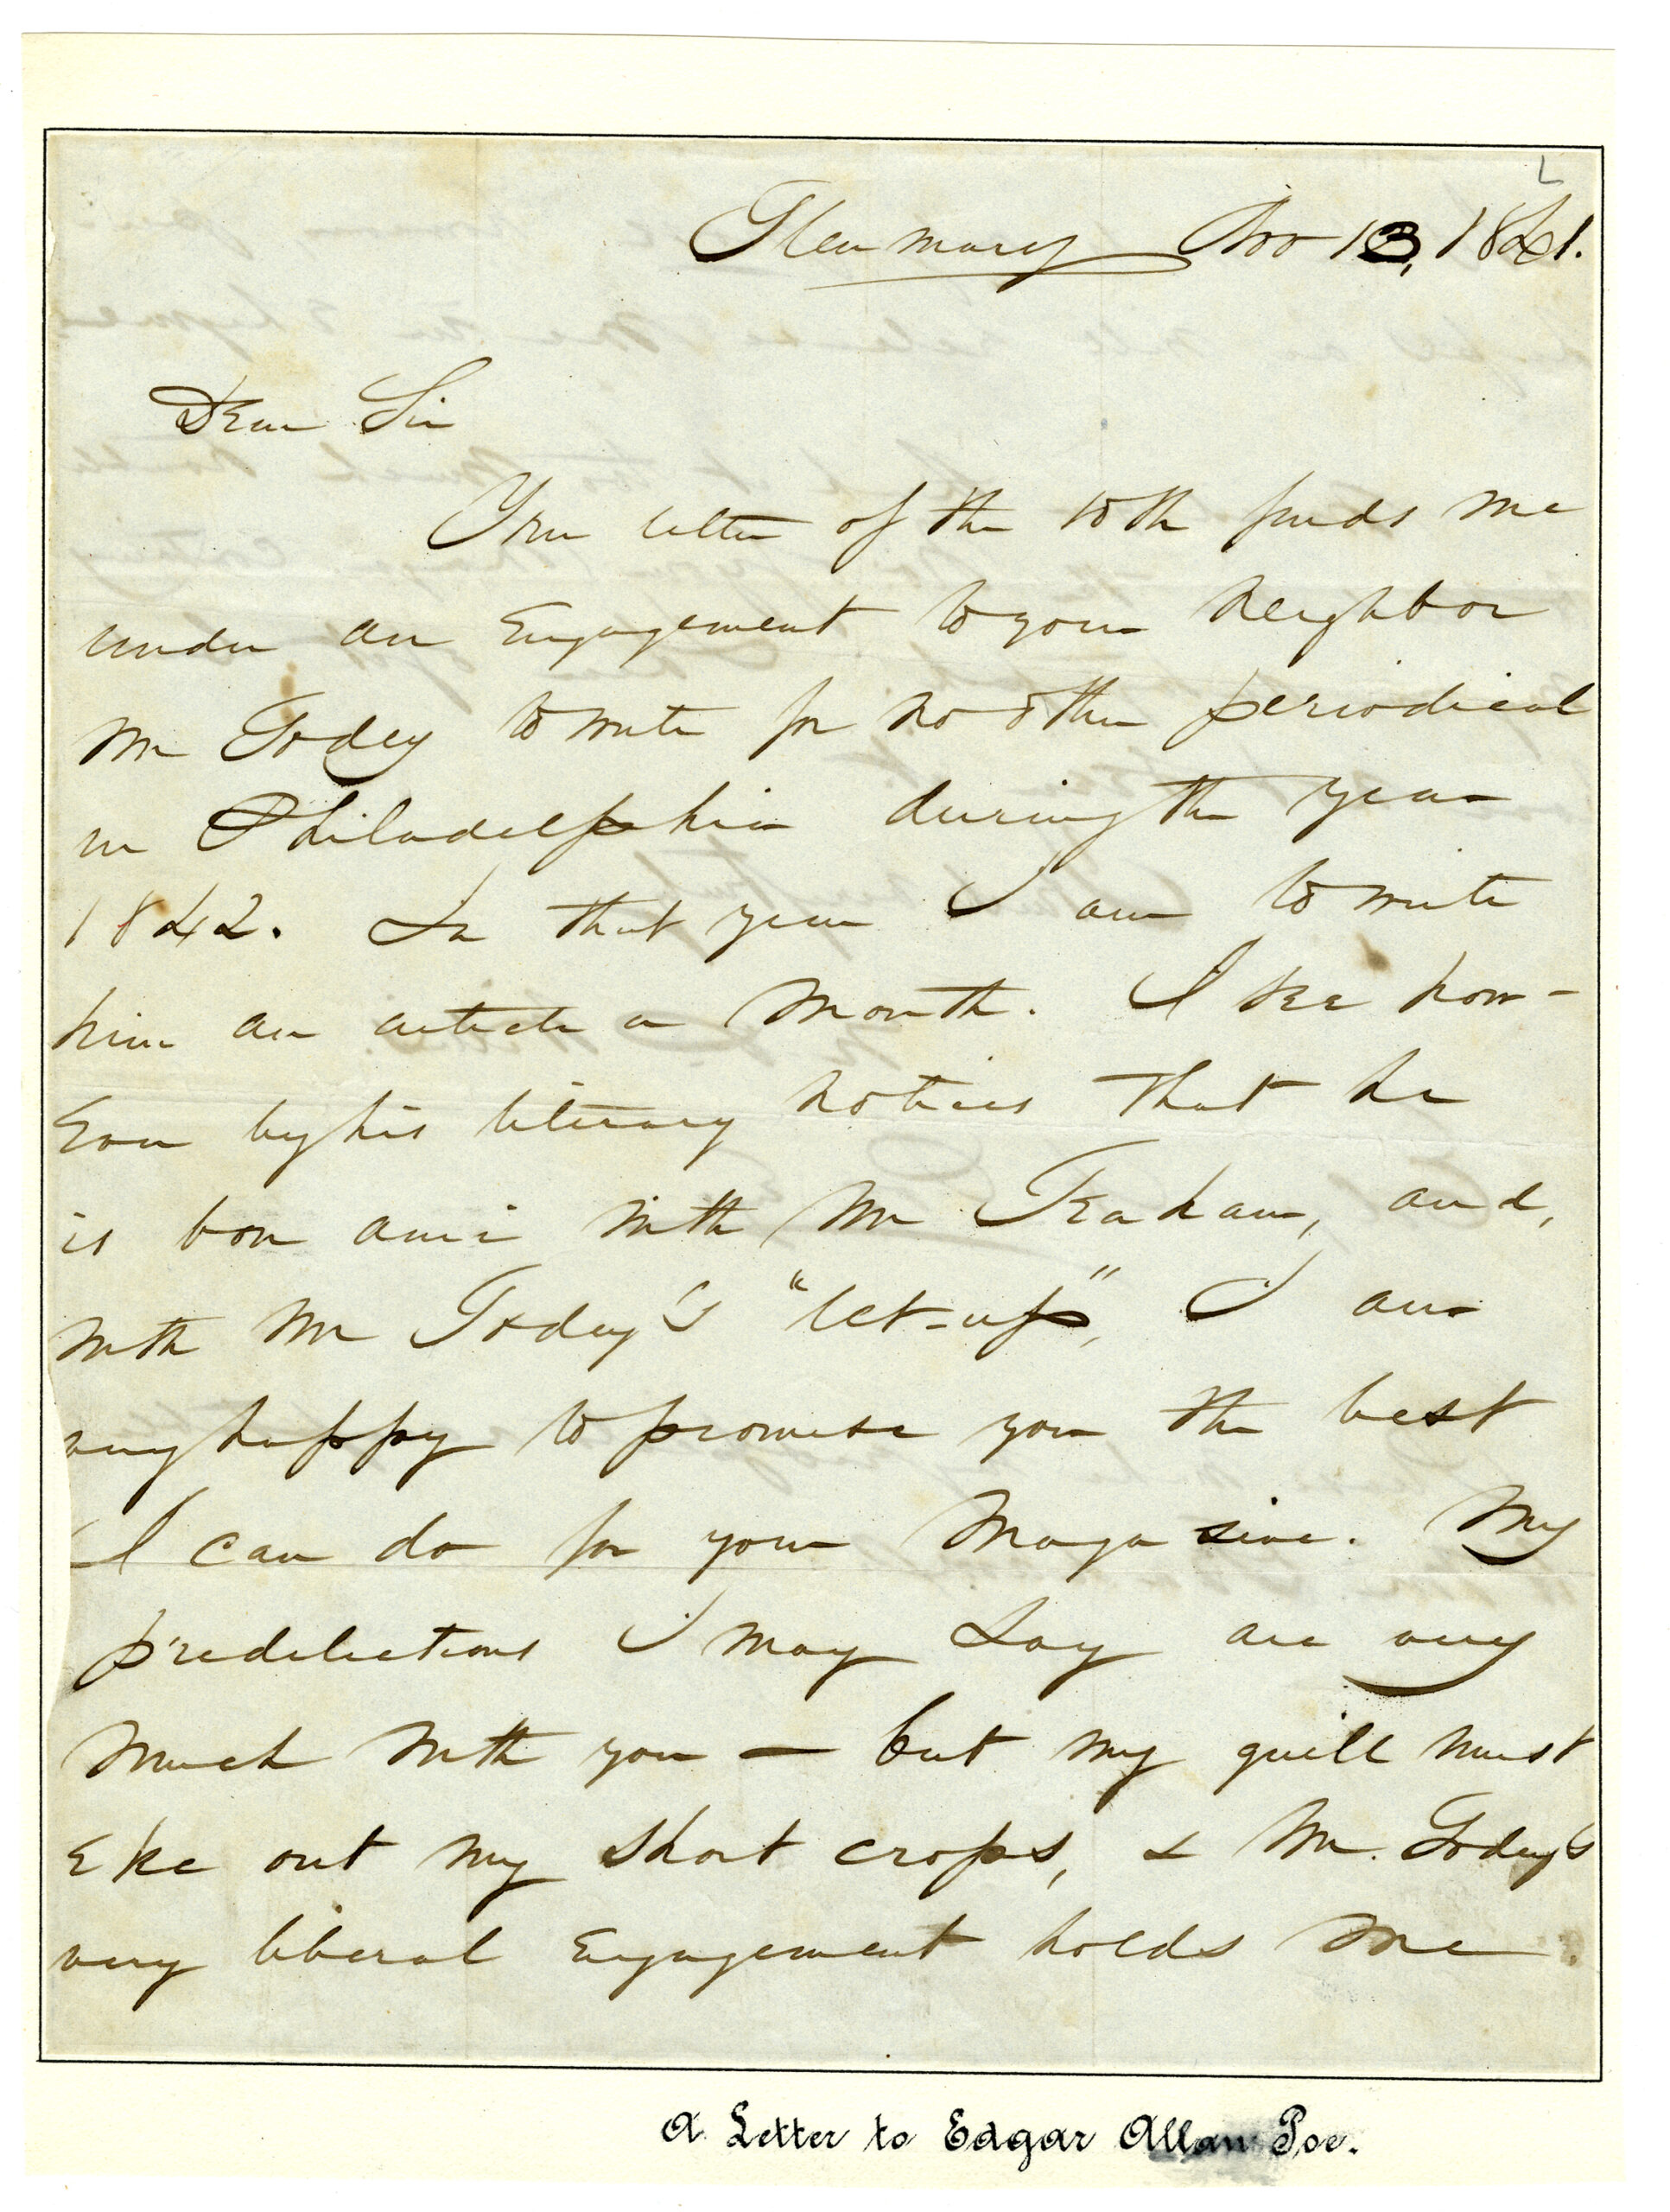 L
Glenmary Nov 13, 1841.
Dear Sir
Your letter of the 10th finds me
under an Engagement to your neighbor
Mr Godey to write for no other periodical
in Philadelphia during the year
1842. In that year I am to write
him an article a month. I see how-
Ever by his literary notices that he
is bon ami with Mr Graham, and,
with Mr Godey's "let-up", I am
very happy to promise you the best
I can do for your Magazine. My
predilections I may say are very
much with you — but my quill must
Eke out my short crops, & Mr. Godey's
very liberal Engagement holds me.
A Letter to Edgar Allan Poe.